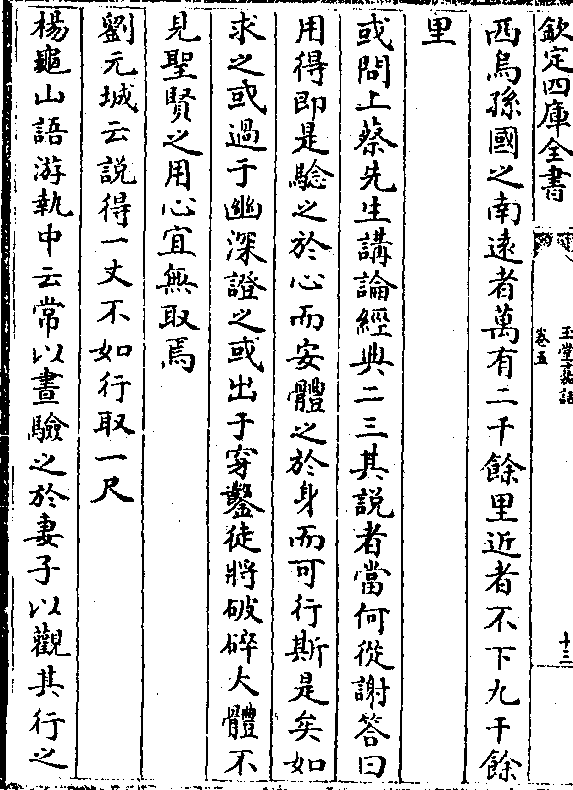 欽定四庫全書
玉堂嘉話
卷五
十三
西烏孫國之南逺者萬有二千餘里近者不下九千餘
里
或問上蔡先生講論經典二三其説者當何從謝答曰
用得即是騐之於心而安體之於身而可行斯是矣如
求之或過于幽深證之或出于穿鑿徒將破碎大體不
見聖賢之用心宜無取焉
劉元城云説得一丈不如行取一尺
楊龜山語游執中云常以晝驗之於妻子以觀其行之